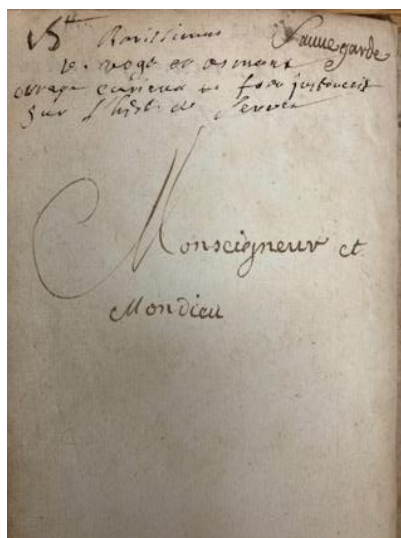 Rarissimus Sauvegarde
v. vogt et osmont
ouvrage curieux et fort instructif
sur l'hist. de Servet
Monseigneur et
Mondieu